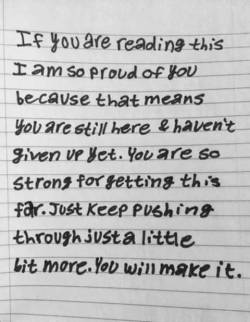 If you are reading this
I am so proud of you
because that means
you are still here & haven't
given up yet. You are so
strong for getting this
far. Just keep pushing
through just a little
bit more. You will make it.